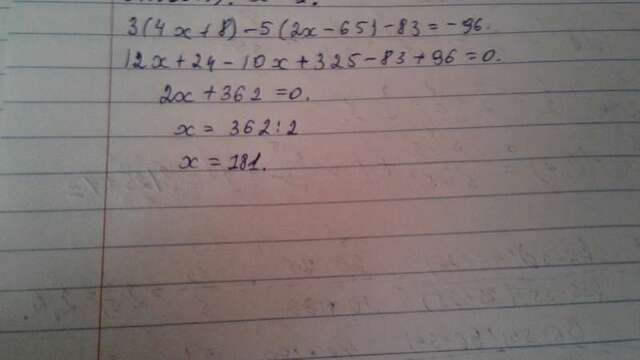 3(4x+8)-5(2x-65)-83=-96.
12x+24-10x+325-83+96=0.
2x+362=0.
x=362:2
x=181.